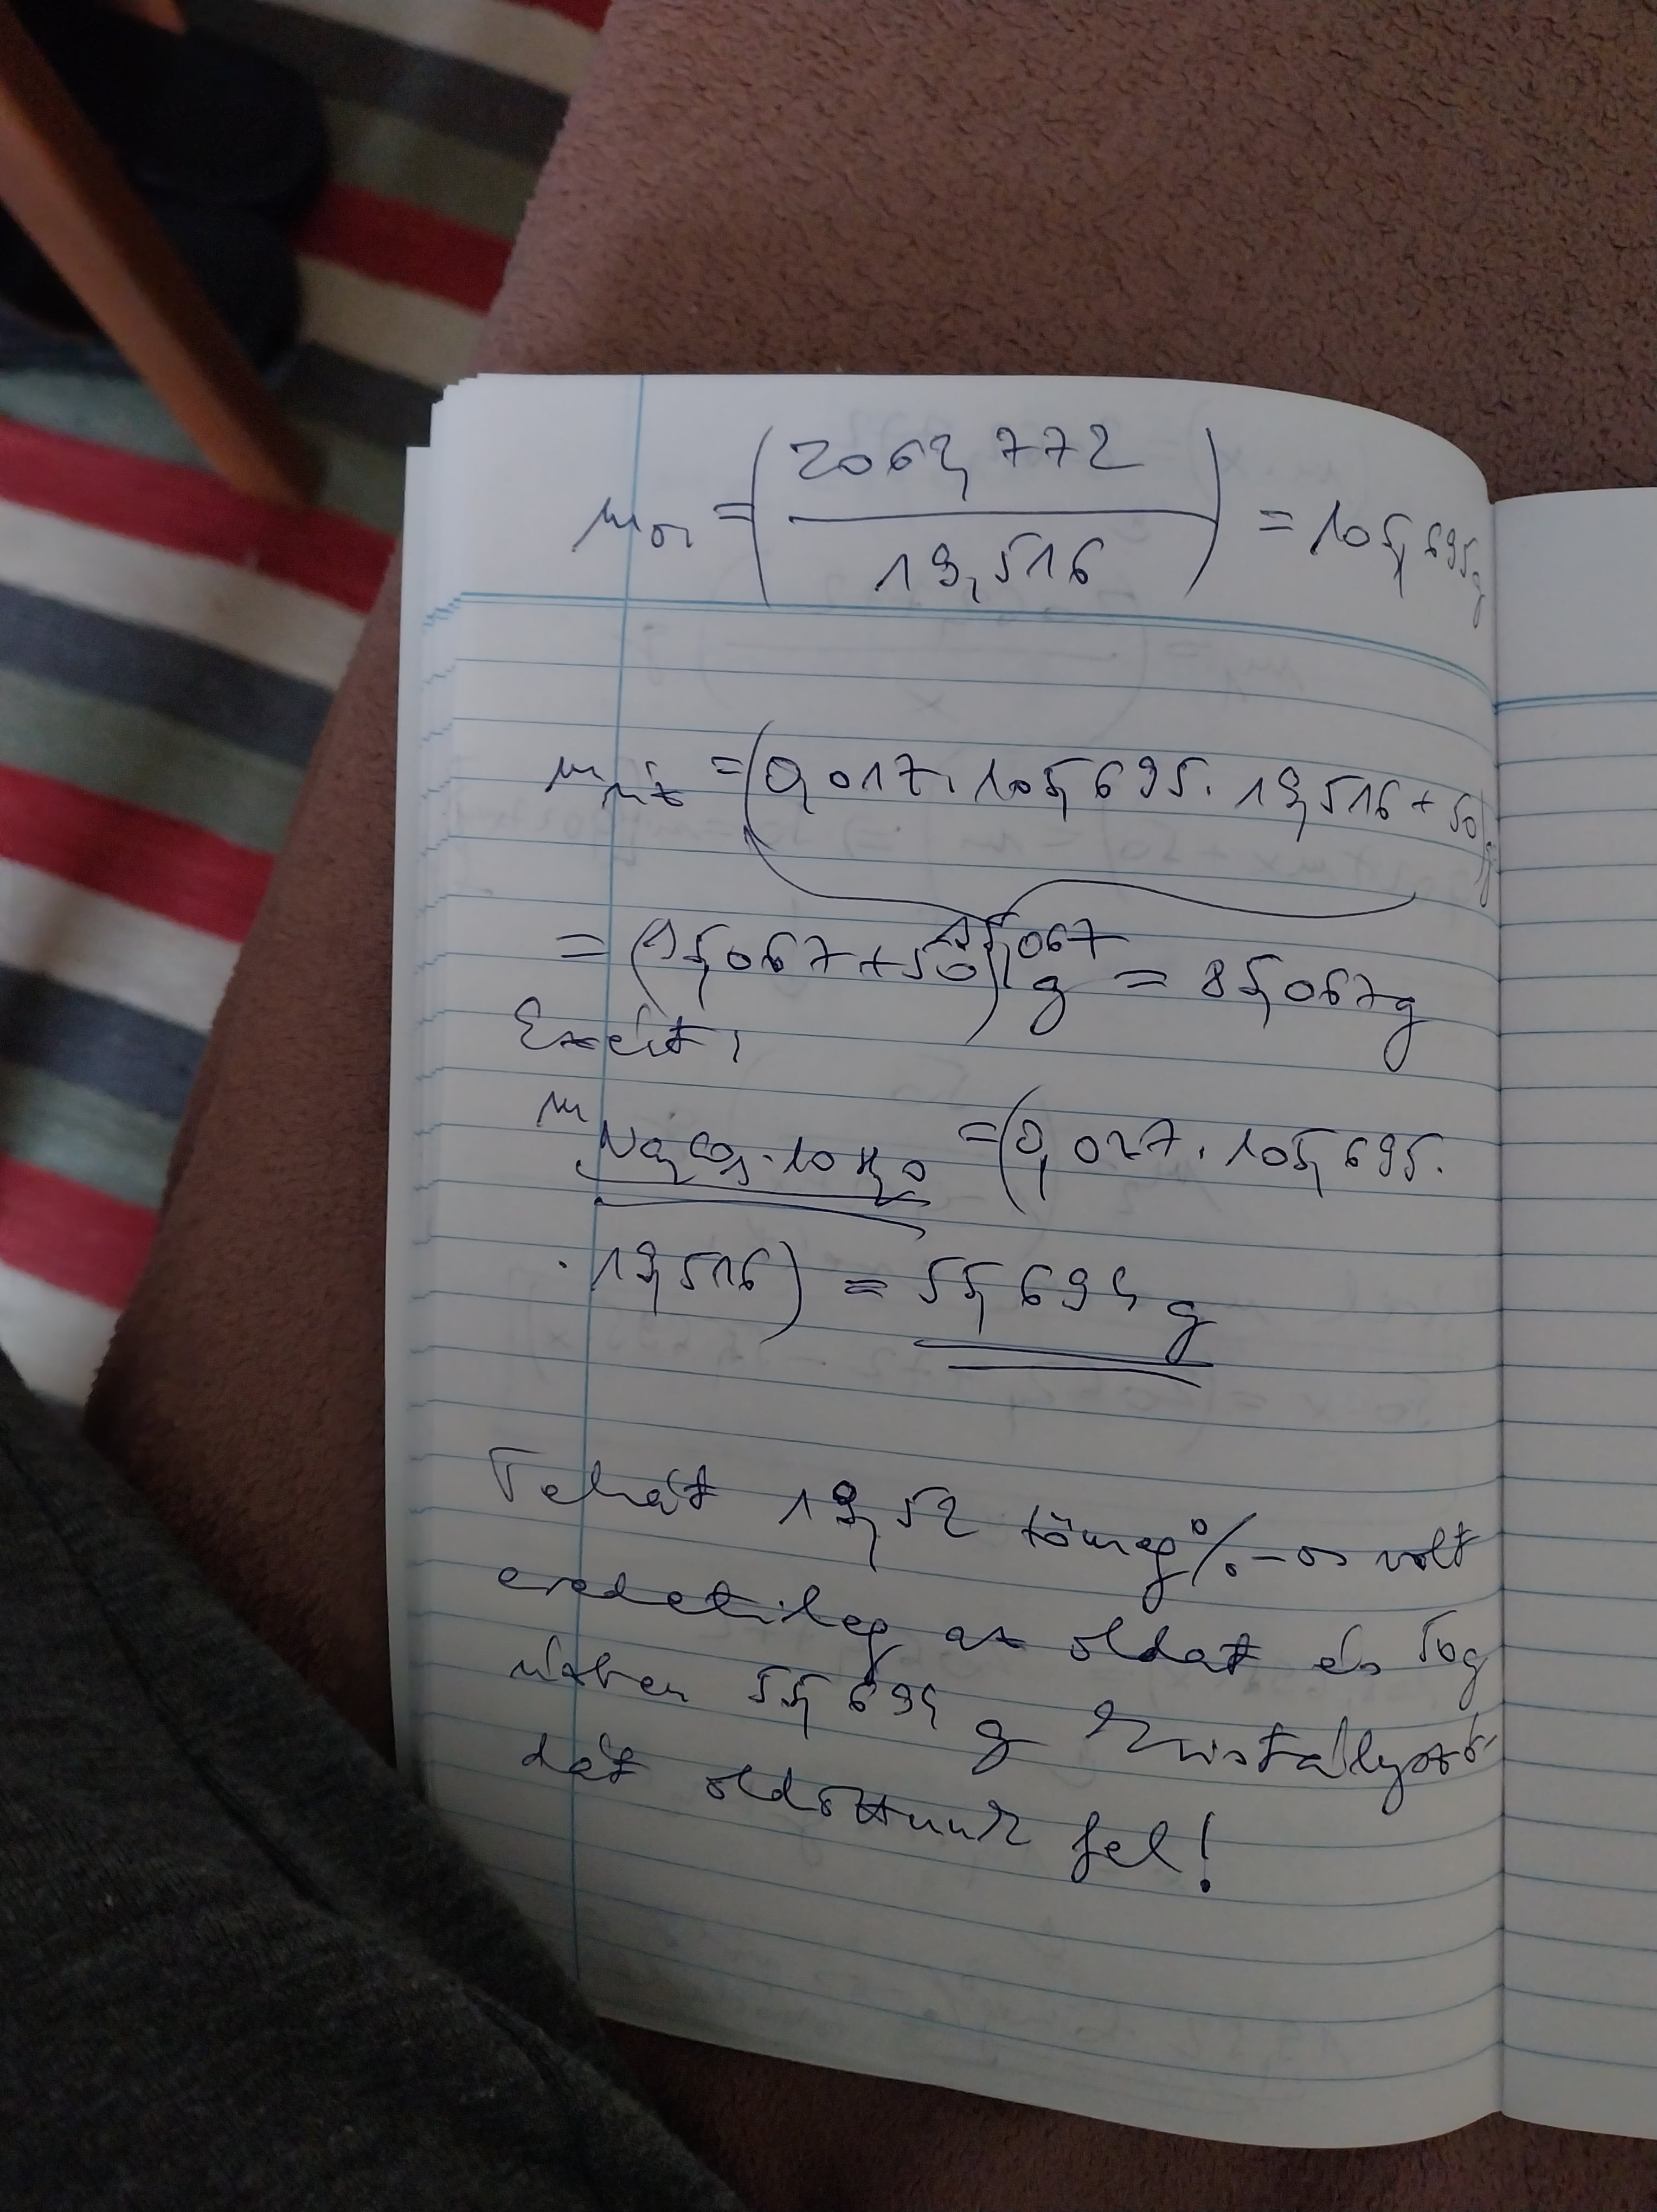 m_or = (2062,772 / 19,516) = 105,695g
m_víz = (0,017 · 105,695 · 19,516 + 50)g
35,067
= (35,067 + 50)g = 85,067g
Ezért:
m_Na2CO3·10H2O = (0,027 · 105,695 ·
· 19,516) = 55,694 g
Tehát 19,52 tömeg%-os volt
eredetileg az oldat és 50g
vízben 55,694 g kristályszó-
dát oldottunk fel!